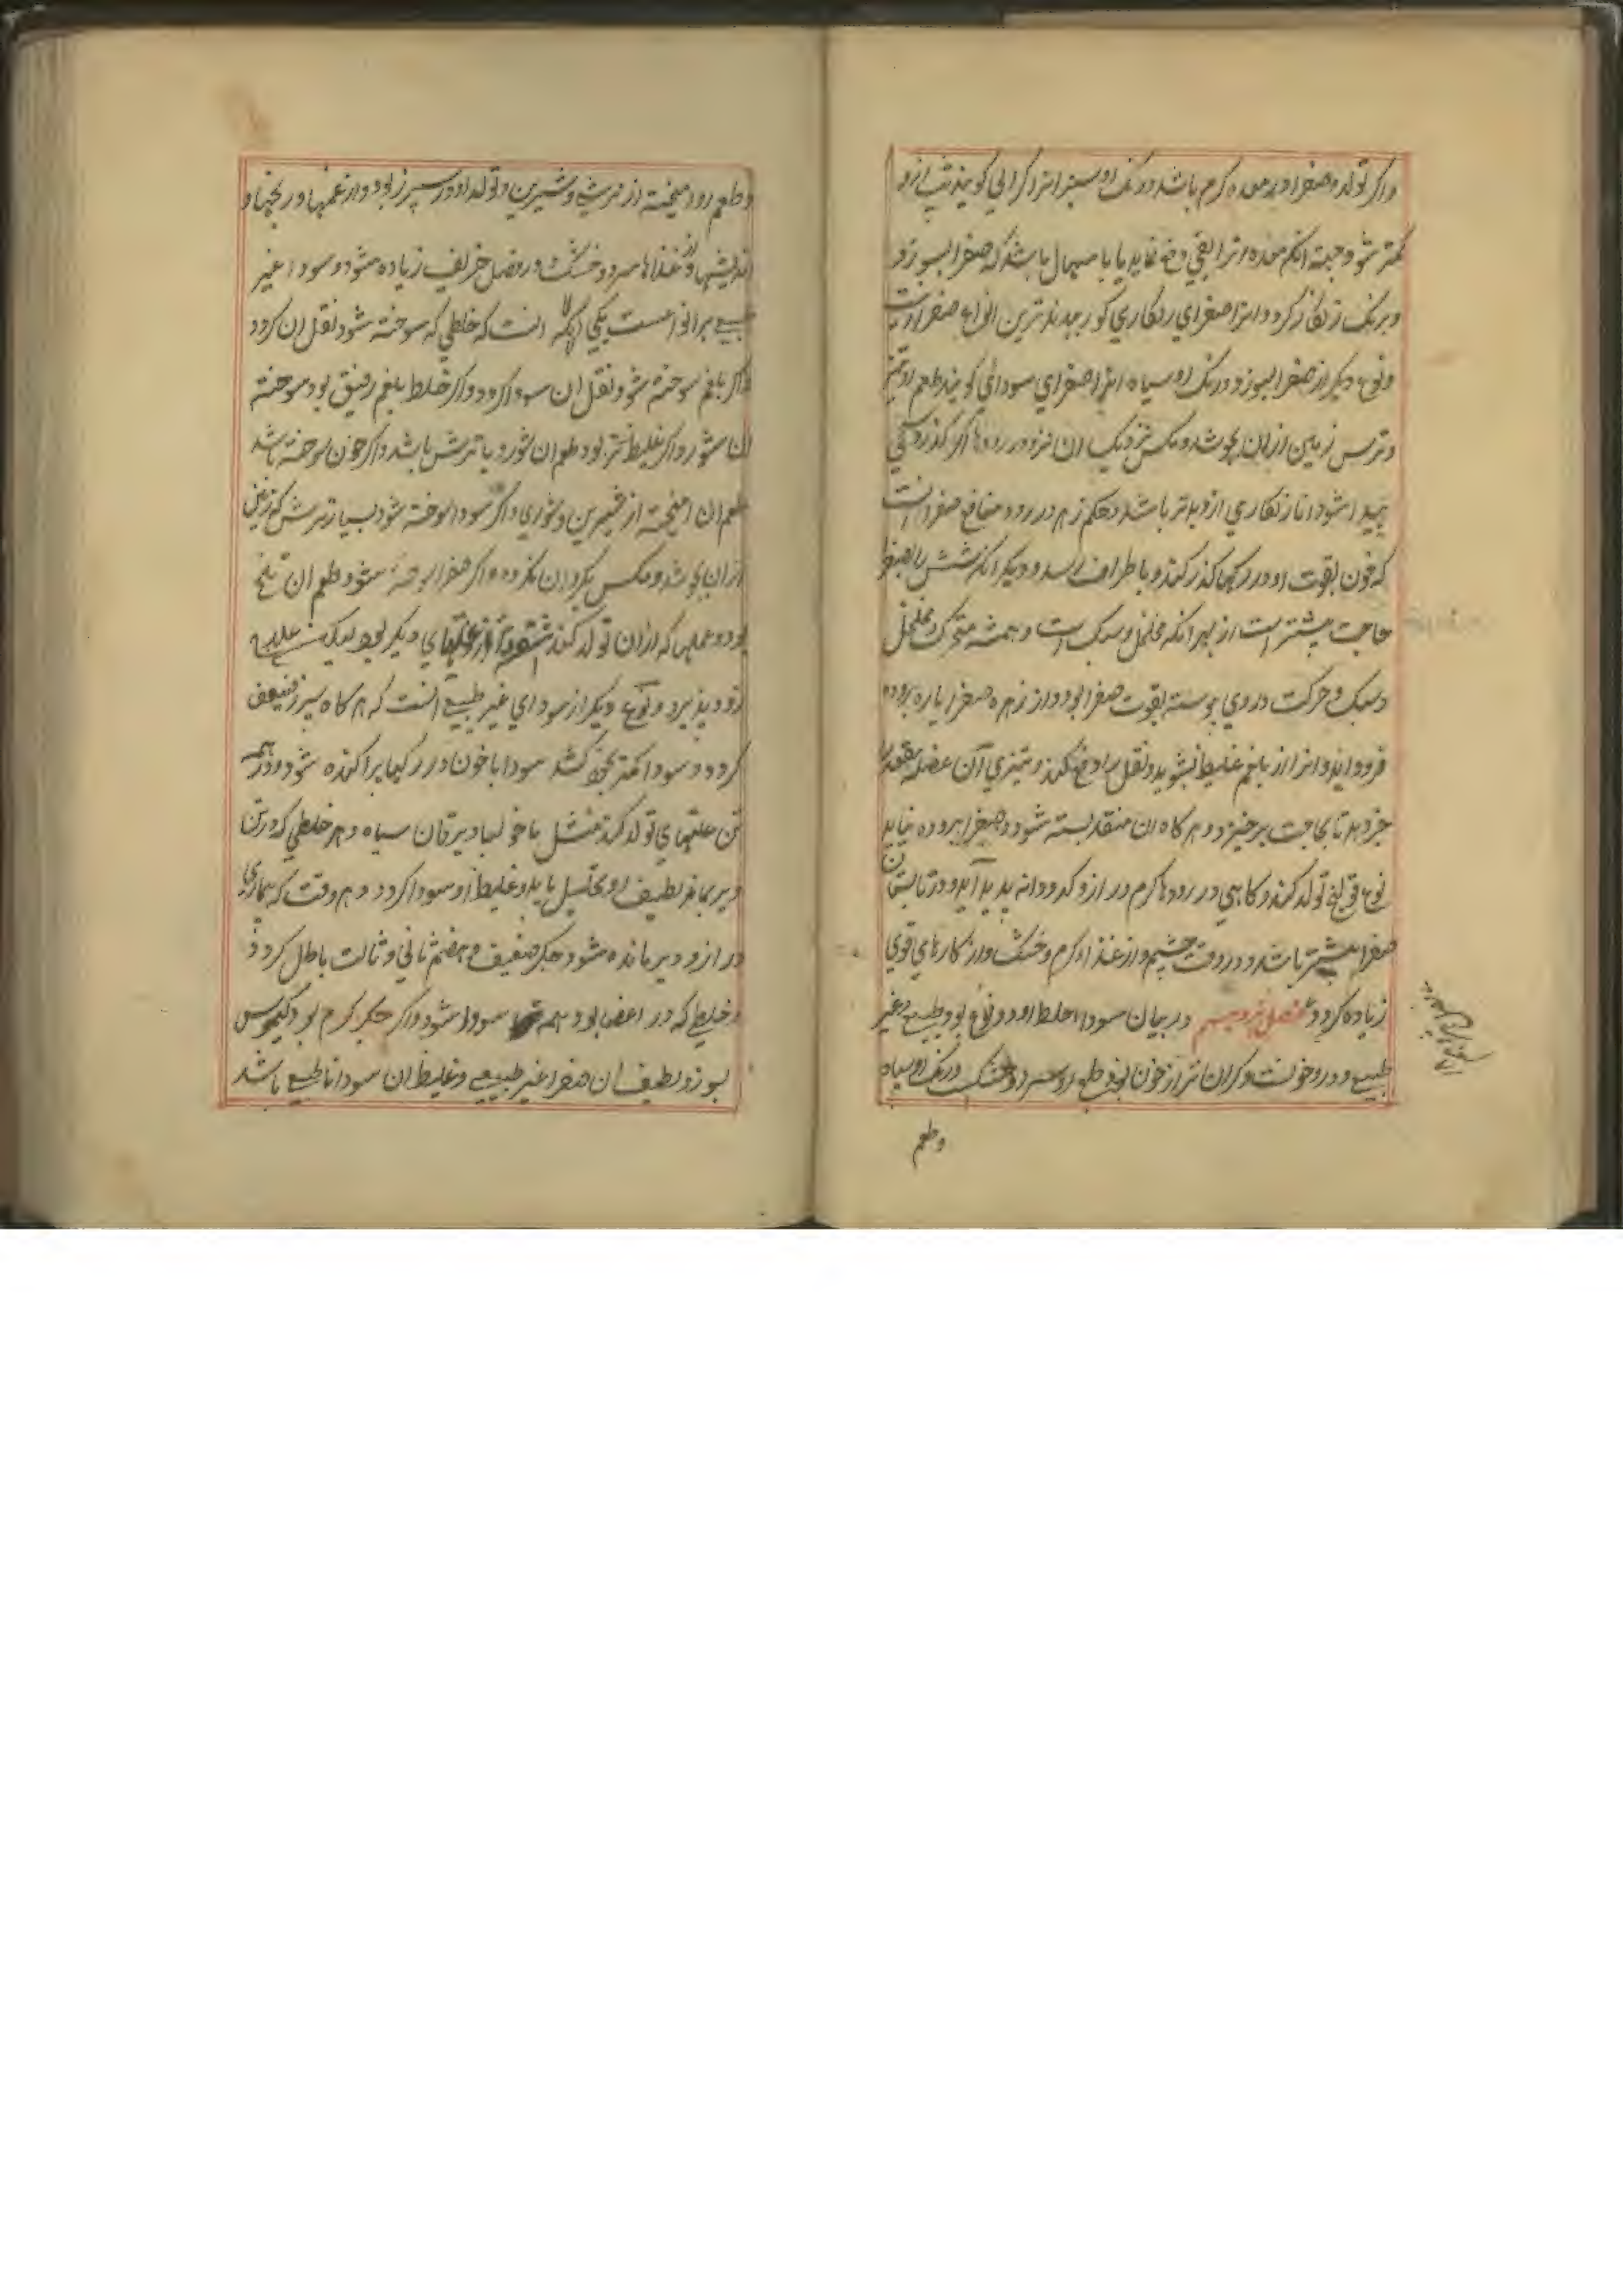 واکر تولد صفرا در معده کرم باشد و رنک او سبز انرا کراثی کویند تب ازو
کمتر شود جهته انکه معده انرا بقی دفع نماید یا با سهال باشد که صفرا بسوزد
و برنک زنکار کردد انرا صفرای زنکاری کویند بدترین انواع صفرا اینست
و نوع دیکر از صفرا بسوزد و رنک او سیاه انرا صفرای سودائی کویند طعم او تیز
و ترش زمین از ان بجوشد و مکس نزدیک ان نرود در رودها اکر کذر کند
پیدا شود اما زنکاری ازو بدتر باشد و حکم زهر دارد و منافع صفرا انست
که خون بقوت او در رکها کذر کند و باطراف رسد و دیکر انکه شش را بصفرا
حاجت بیشتر است از بهر انکه مخلخل و سبک است و همیشه متحرک و مخلخل
و سبک و حرکت در وی پیوسته بقوت صفرا بود و از زهره صفرا پاره بروده
فرود اید و انرا از بلغم غلیظ بشوید و ثقل را دفع کند و بتیزی آن عضله مقعد را
خبر دهد تا بحاجت برخیزد و هر کاه ان منفذ بسته شود و صفرا بروده نیاید
نوع قولنج تولد کند و کاهی در رودها کرم دراز و کدودانه پدید آید و در تابستان
صفرا بیشتر باشد و در وقت خشم و از غذاء کرم و خشک و از کارهای قوی
زیاده کردد فصل نوزدهم در بیان سودا خلط او دو نوع بود طبیعی و غیر
طبیعی و درد خونست و کران تر از خون بود و طبع او سرد و خشک و رنک او سیاه
وطعم
و طعم او امیخته از ترشی و شیرینی و تولد او در سپرز بود و از غمها و رنجها و
اندیشها و از غذاها سرد و خشک و در فصل خریف زیاده شود و سودا غیر
طبیعی بر انواعست یکی انکه انست که خلطی که سوخته شود ثقل ان کردد
اکر بلغم سوخته شود ثقل ان سودا کردد و اکر خلط بلغم رقیق بود سوخته
ان شور و اکر غلیظ تر بود طعم ان شور و یا ترش باشد و اکر خون سوخته باشد
طعم ان امیخته از شیرین و شوری و اکر سودا سوخته شود بسیار ترش که زمین
از ان بجوشد و مکس بکرد ان نکردد و اکر صفرا سوخته شود طعم ان تلخ
بود و عملها که از ان تولد کند از علتهای دیکر بود لیکن علاج
زود پذیرد و نوع دیکر از سودای غیر طبیعی انست که هر کاه سپرز ضعیف
کردد و سودا کمتر بخود کشد سودا با خون در رکها پراکنده شود و در همه
تن علتهای تولد کند مثل ماخولیا و یرقان سیاه و هر خلطی که در تن
دیر بماند لطیف او تحلیل یابد و غلیظ او سودا کردد و هر وقت که بیماری
دراز و دیر مانده شود جکر ضعیف و هضم ثانی و ثالث باطل کردد
و خلطی که در اعضا بود همه سودا شود و اکر جکر کرم بود کیموس
بسوزد لطیف ان صفرا غیر طبیعی و غلیظ ان سودا نا طبیعی باشد